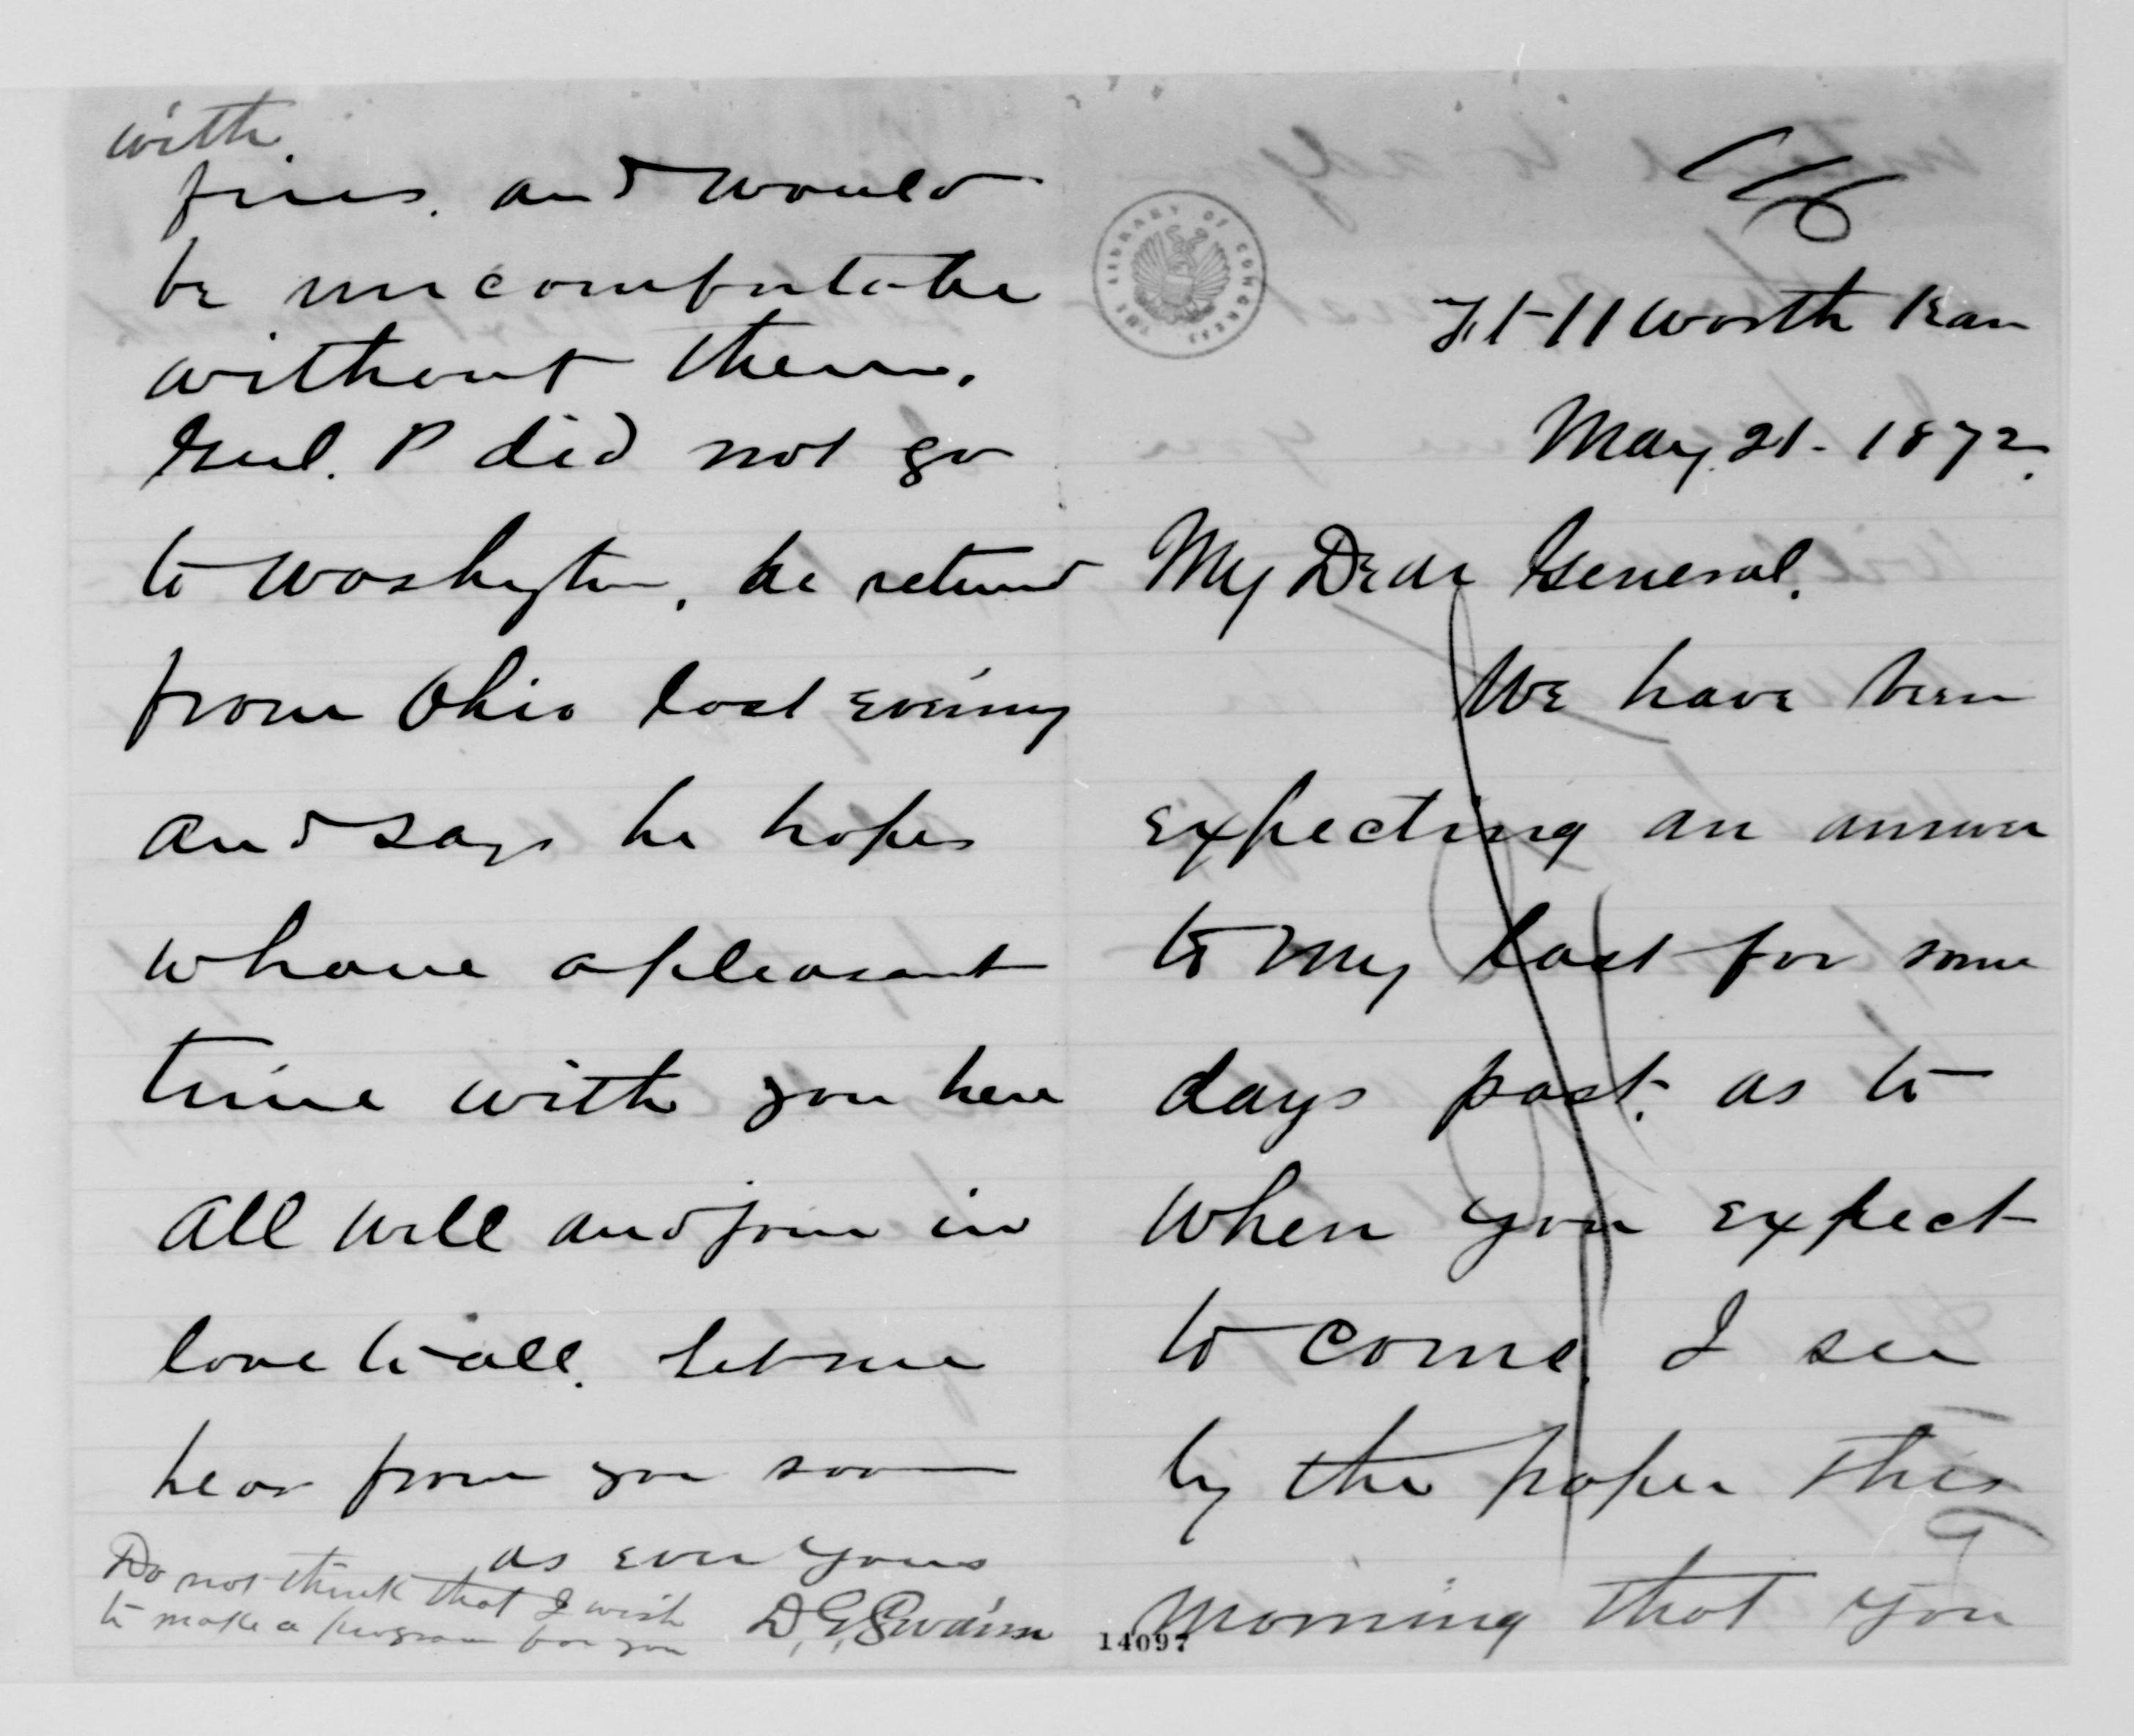 Ft II Worth Kan
May. 21 - 1872.
My Dear General.
We have been
expecting an answer
to my last for some
days past. as to
when you expect
to come. I see
by the paper this
morning that you
14097
with
fires. and would
be uncomfortable
without them.
Genl. P did not go
to Washington, he returnd
from Ohio last evening
and says he hopes
to have a pleasant
time with you here
all well and join in
love to all. Let me
hear from you soon
as ever yours
D. G. Swaim
Do not think that I wish
to make a program for you
THE LIBRARY OF CONGRESS